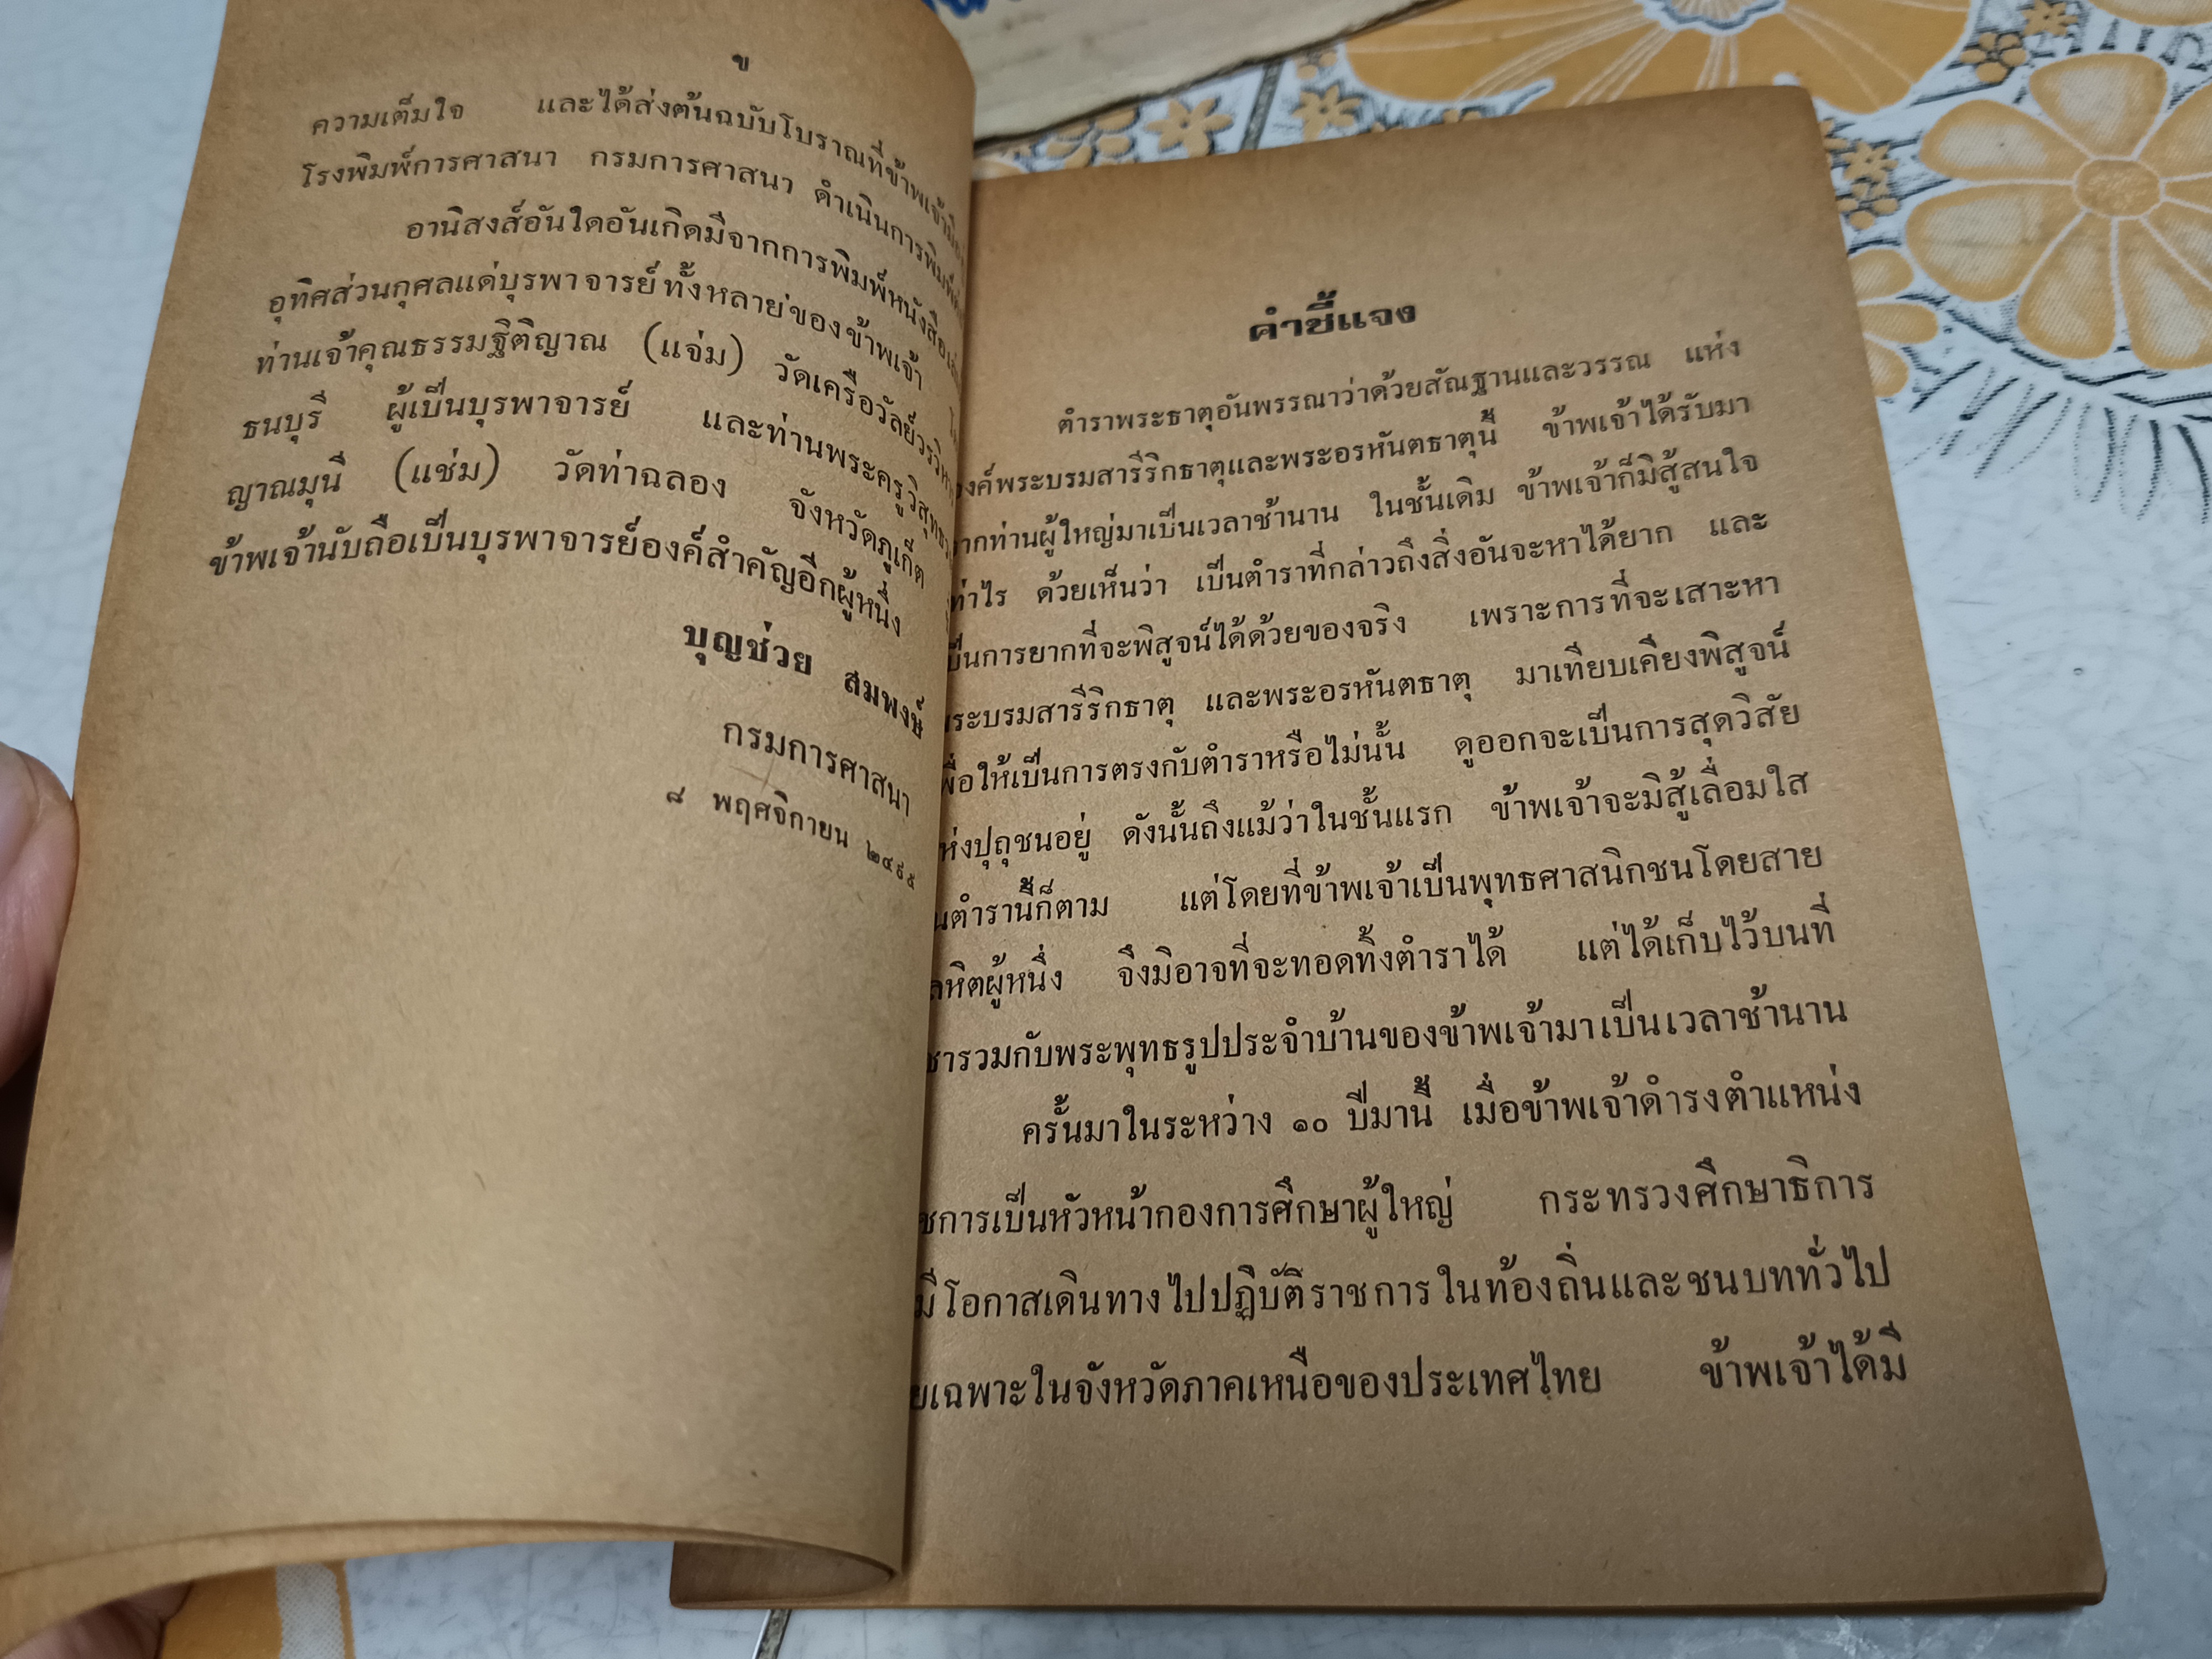 ข
ความเต็มใจ และได้ส่งต้นฉบับโบราณที่ข้าพเจ้ามี
โรงพิมพ์การศาสนา กรมการศาสนา ดำเนินการพิมพ์
อานิสงส์อันใดอันเกิดมีจากการพิมพ์หนังสือ
อุทิศส่วนกุศลแด่บุรพาจารย์ทั้งหลายของข้าพเจ้า
ท่านเจ้าคุณธรรมฐิติญาณ (แจ่ม) วัดเครือวัลย์วรวิหาร
ธนบุรี ผู้เป็นบุรพาจารย์ และท่านพระครูวิสุทธ
ญาณมุนี (แช่ม) วัดท่าฉลอง จังหวัดภูเก็ต
ข้าพเจ้านับถือเป็นบุรพาจารย์องค์สำคัญอีกผู้หนึ่ง
บุญช่วย สมพงษ์
กรมการศาสนา
๘ พฤศจิกายน
คำชี้แจง
ตำราพระธาตุอันพรรณาว่าด้วยสัณฐานและวรรณ แห่ง
องค์พระบรมสารีริกธาตุและพระอรหันตธาตุนี้ ข้าพเจ้าได้รับมา
ากท่านผู้ใหญ่มาเป็นเวลาช้านาน ในชั้นเดิม ข้าพเจ้าก็มิสู้สนใจ
ท่าไร ด้วยเห็นว่า เป็นตำราที่กล่าวถึงสิ่งอันจะหาได้ยาก และ
ป็นการยากที่จะพิสูจน์ได้ด้วยของจริง เพราะการที่จะเสาะหา
ระบรมสารีริกธาตุ และพระอรหันตธาตุ มาเทียบเคียงพิสูจน์
พื่อให้เป็นการตรงกับตำราหรือไม่นั้น ดูออกจะเป็นการสุดวิสัย
ห่งปุถุชนอยู่ ดังนั้นถึงแม้ว่าในชั้นแรก ข้าพเจ้าจะมิสู้เลื่อมใส
นตำรานี้ก็ตาม แต่โดยที่ข้าพเจ้าเป็นพุทธศาสนิกชนโดยสาย
ลหิตผู้หนึ่ง จึงมิอาจที่จะทอดทิ้งตำราได้ แต่ได้เก็บไว้บนที่
ชารวมกับพระพุทธรูปประจำบ้านของข้าพเจ้ามาเป็นเวลาช้านาน
ครั้นมาในระหว่าง ๑๐ ปีมานี้ เมื่อข้าพเจ้าดำรงตำแหน่ง
ชการเป็นหัวหน้ากองการศึกษาผู้ใหญ่ กระทรวงศึกษาธิการ
มีโอกาสเดินทางไปปฏิบัติราชการในท้องถิ่นและชนบททั่วไป
ยเฉพาะในจังหวัดภาคเหนือของประเทศไทย ข้าพเจ้าได้มี